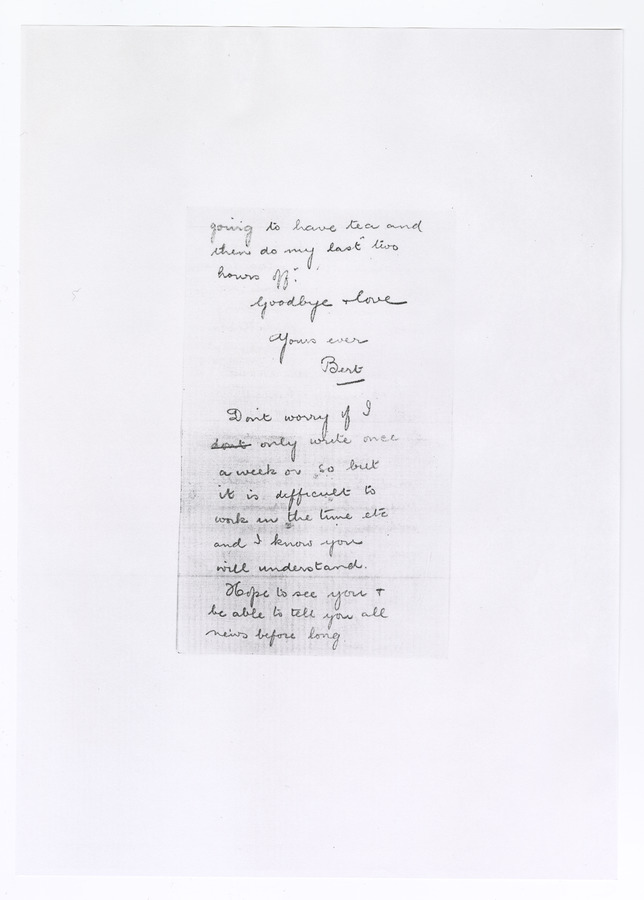 going to have tea and
then do my last "two
hours off".
Goodbye + love
Yours ever
Bert
Dont worry if I
dont only write once
a week or so but
it is difficult to
work in the time etc
and I know you
will understand.
Hope to see you +
be able to tell you all
news before long